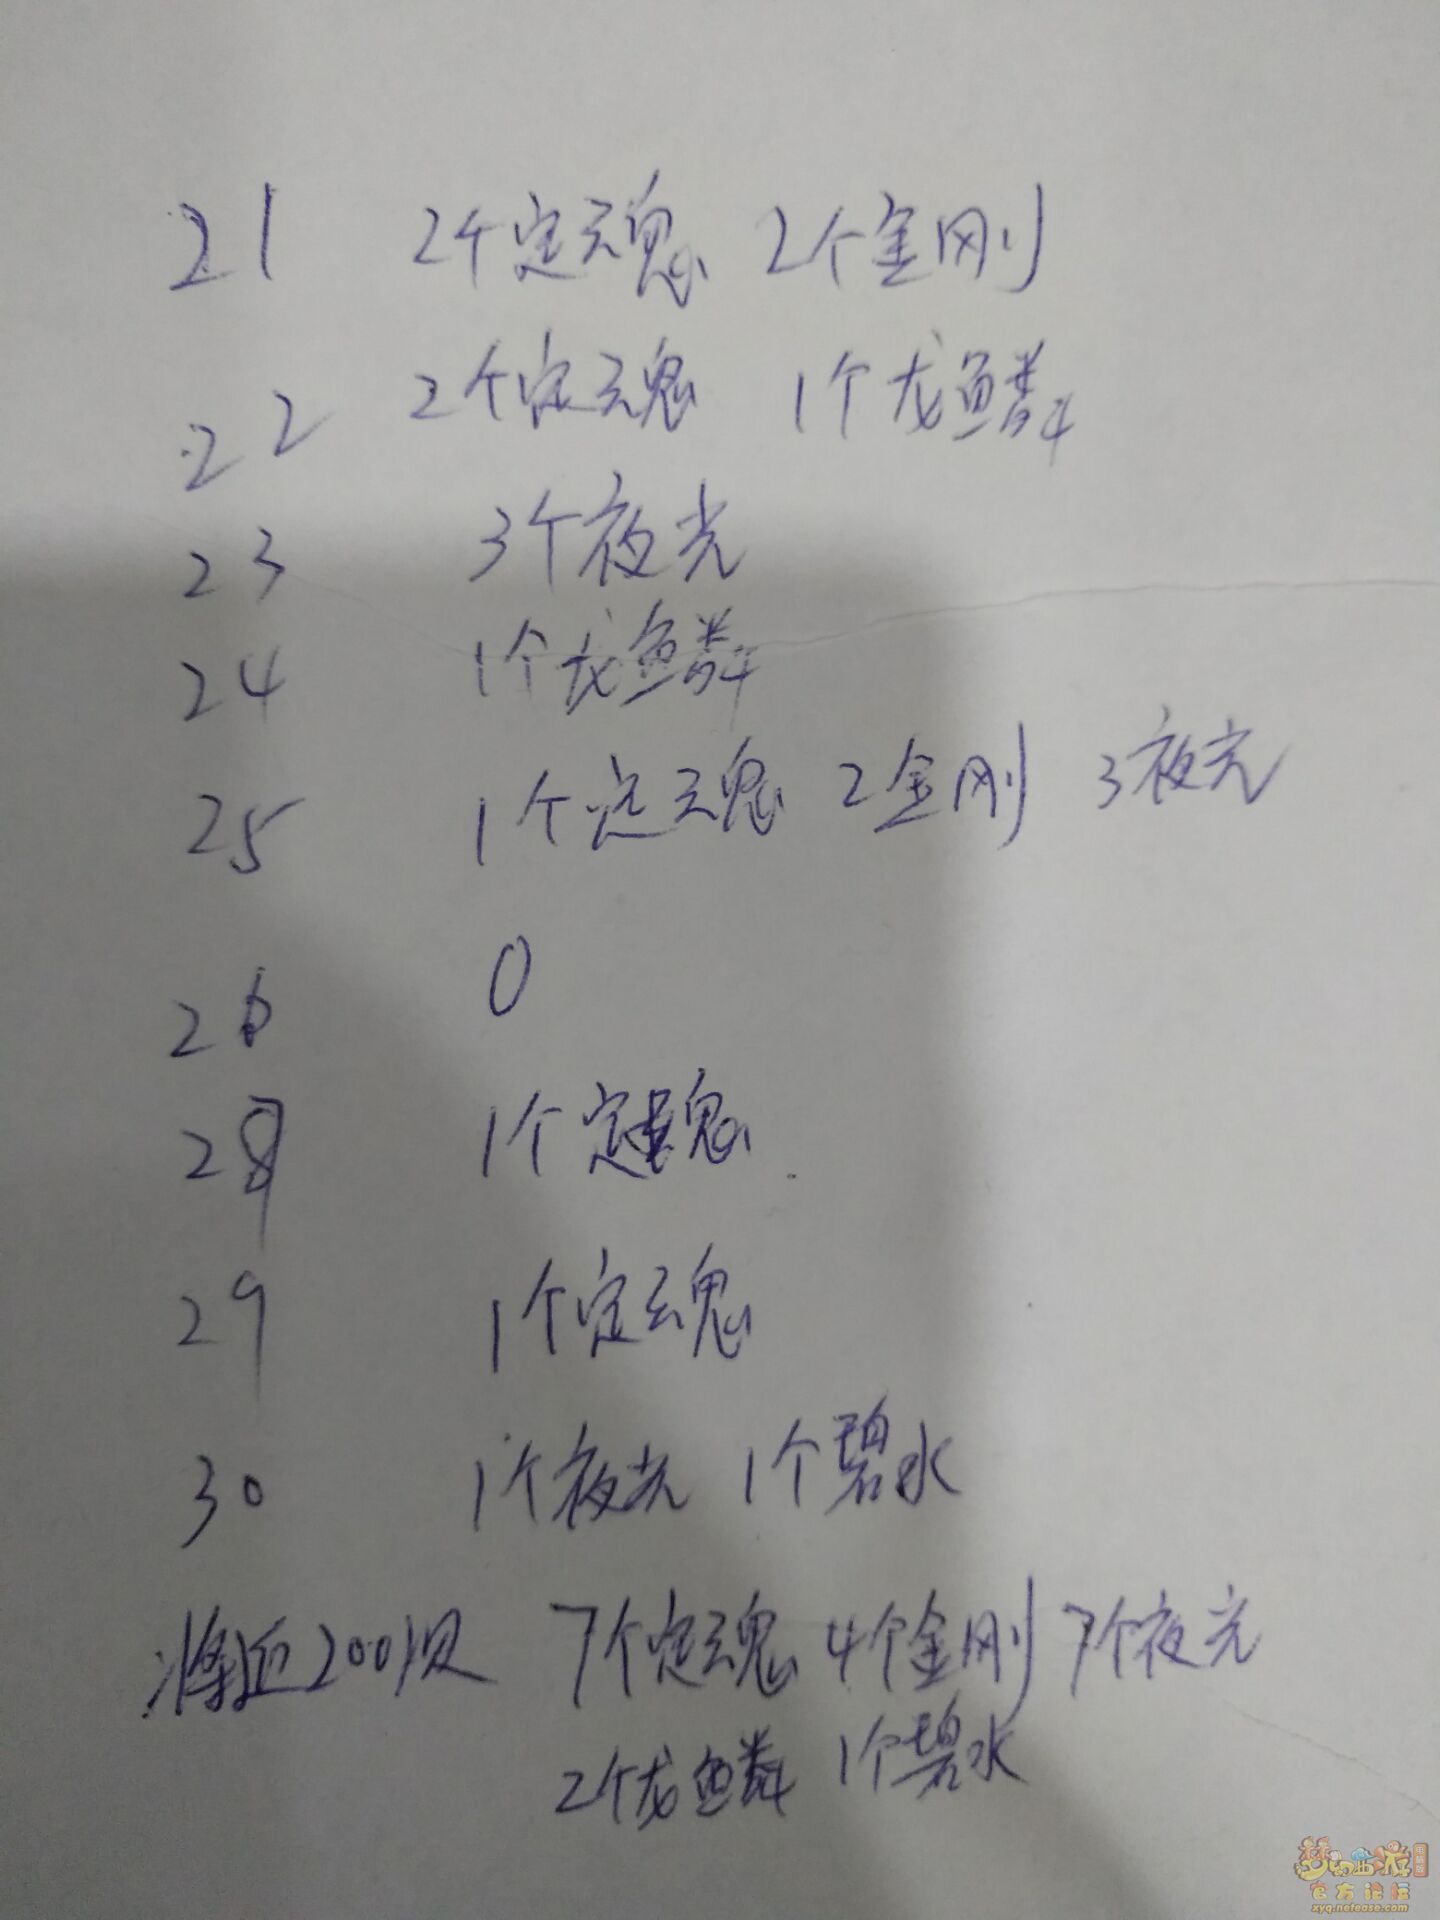 21 2个定魂 2个金刚
22 2个定魂 1个龙鳞
23 3个夜光
24 1个龙鳞
25 1个定魂 2金刚 3夜光
26 0
28 1个定魂
29 1个定魂
30 1个夜光 1个碧水
将近200次 7个定魂 4个金刚 7个夜光
2个龙鳞 1个碧水
梦幻西游 电脑版
官方论坛
xyq.netease.com